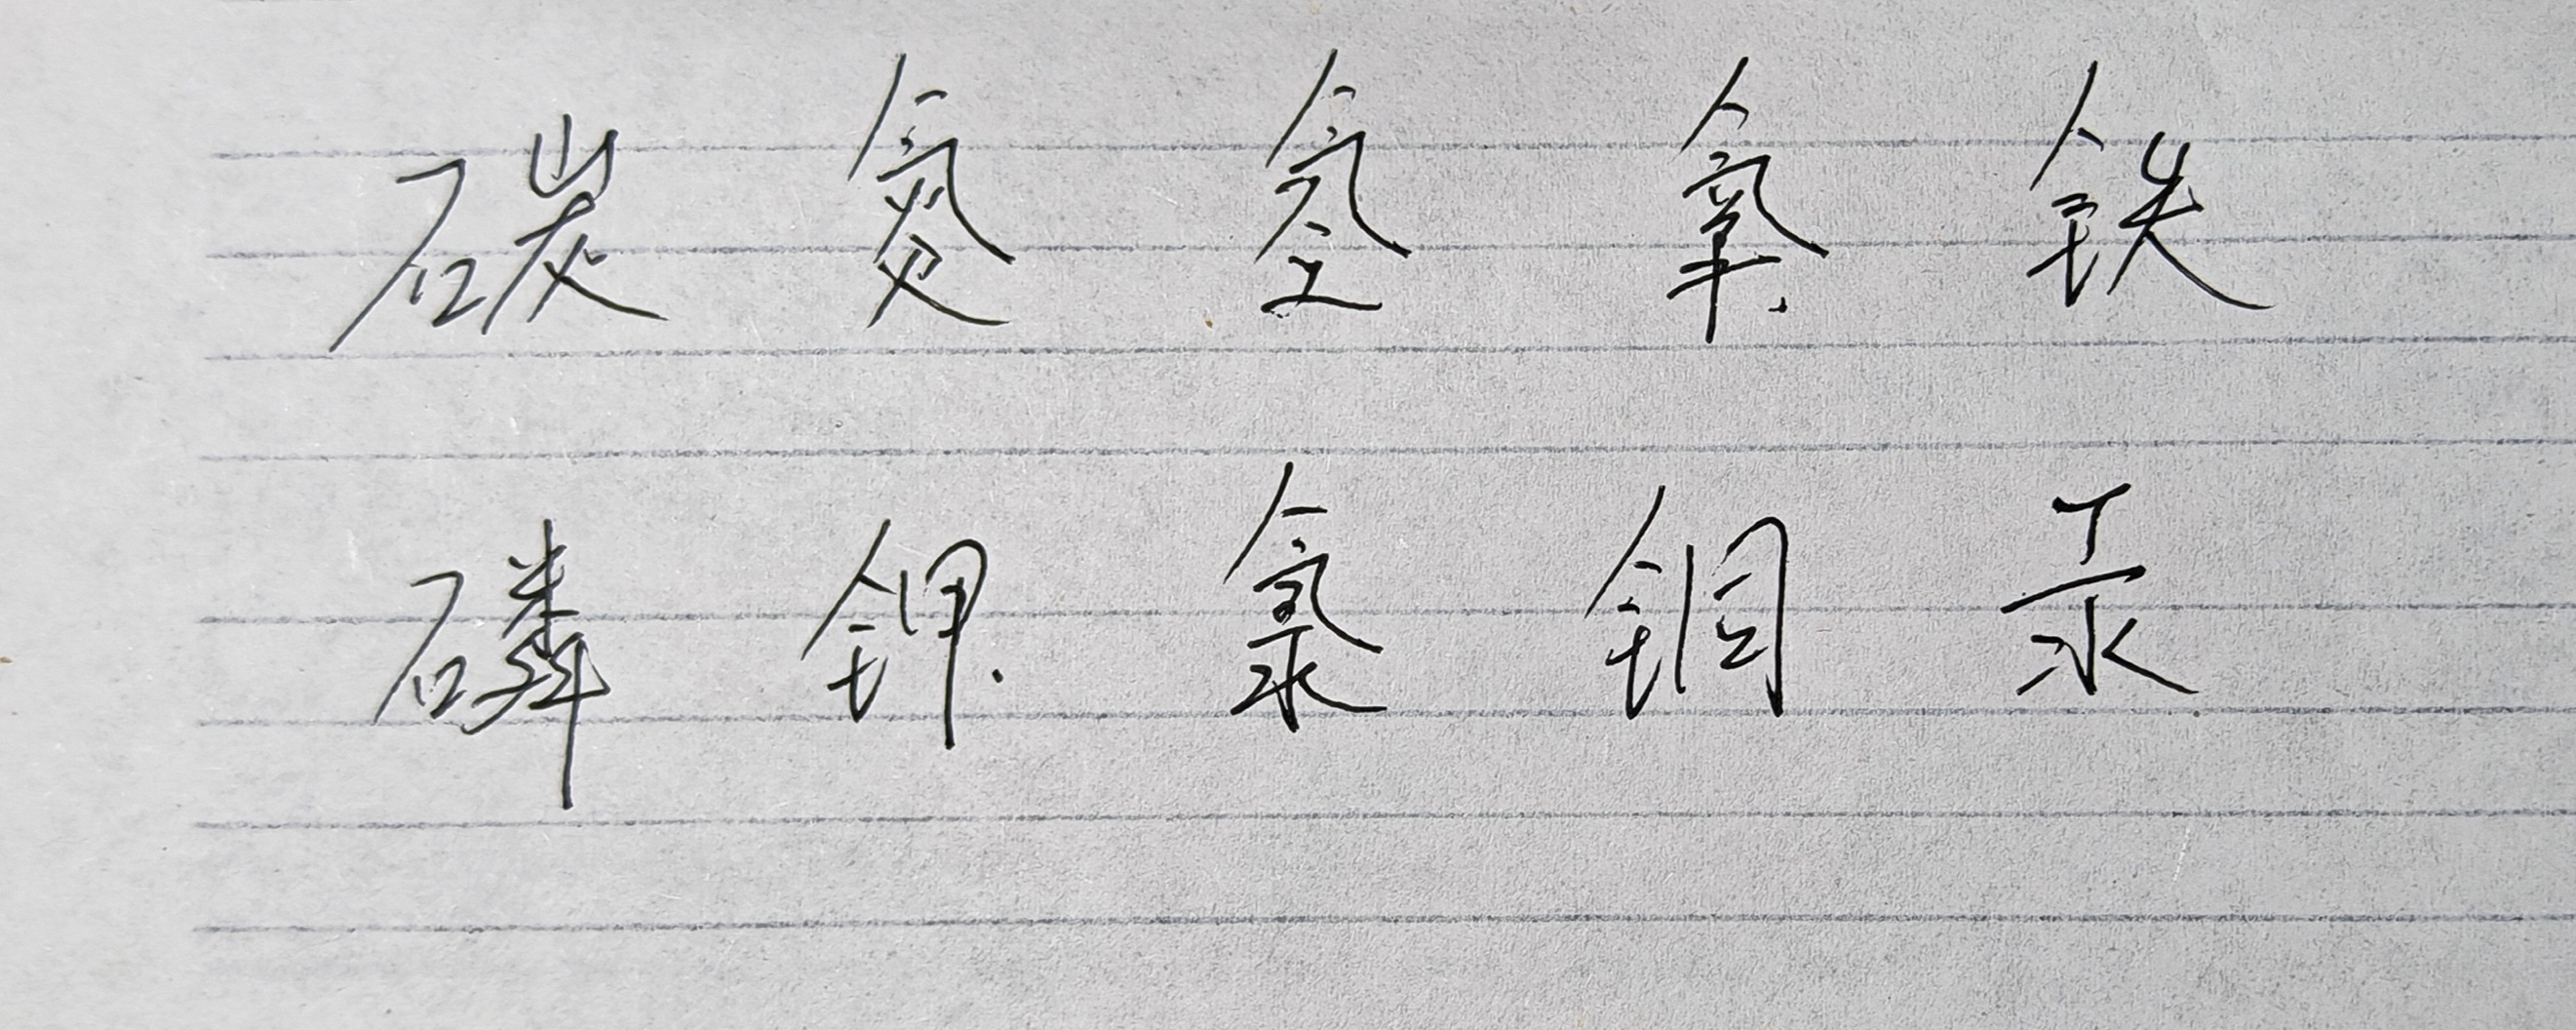 碳 氮 氢 氧 铁
磷 钾 氯 铜 汞